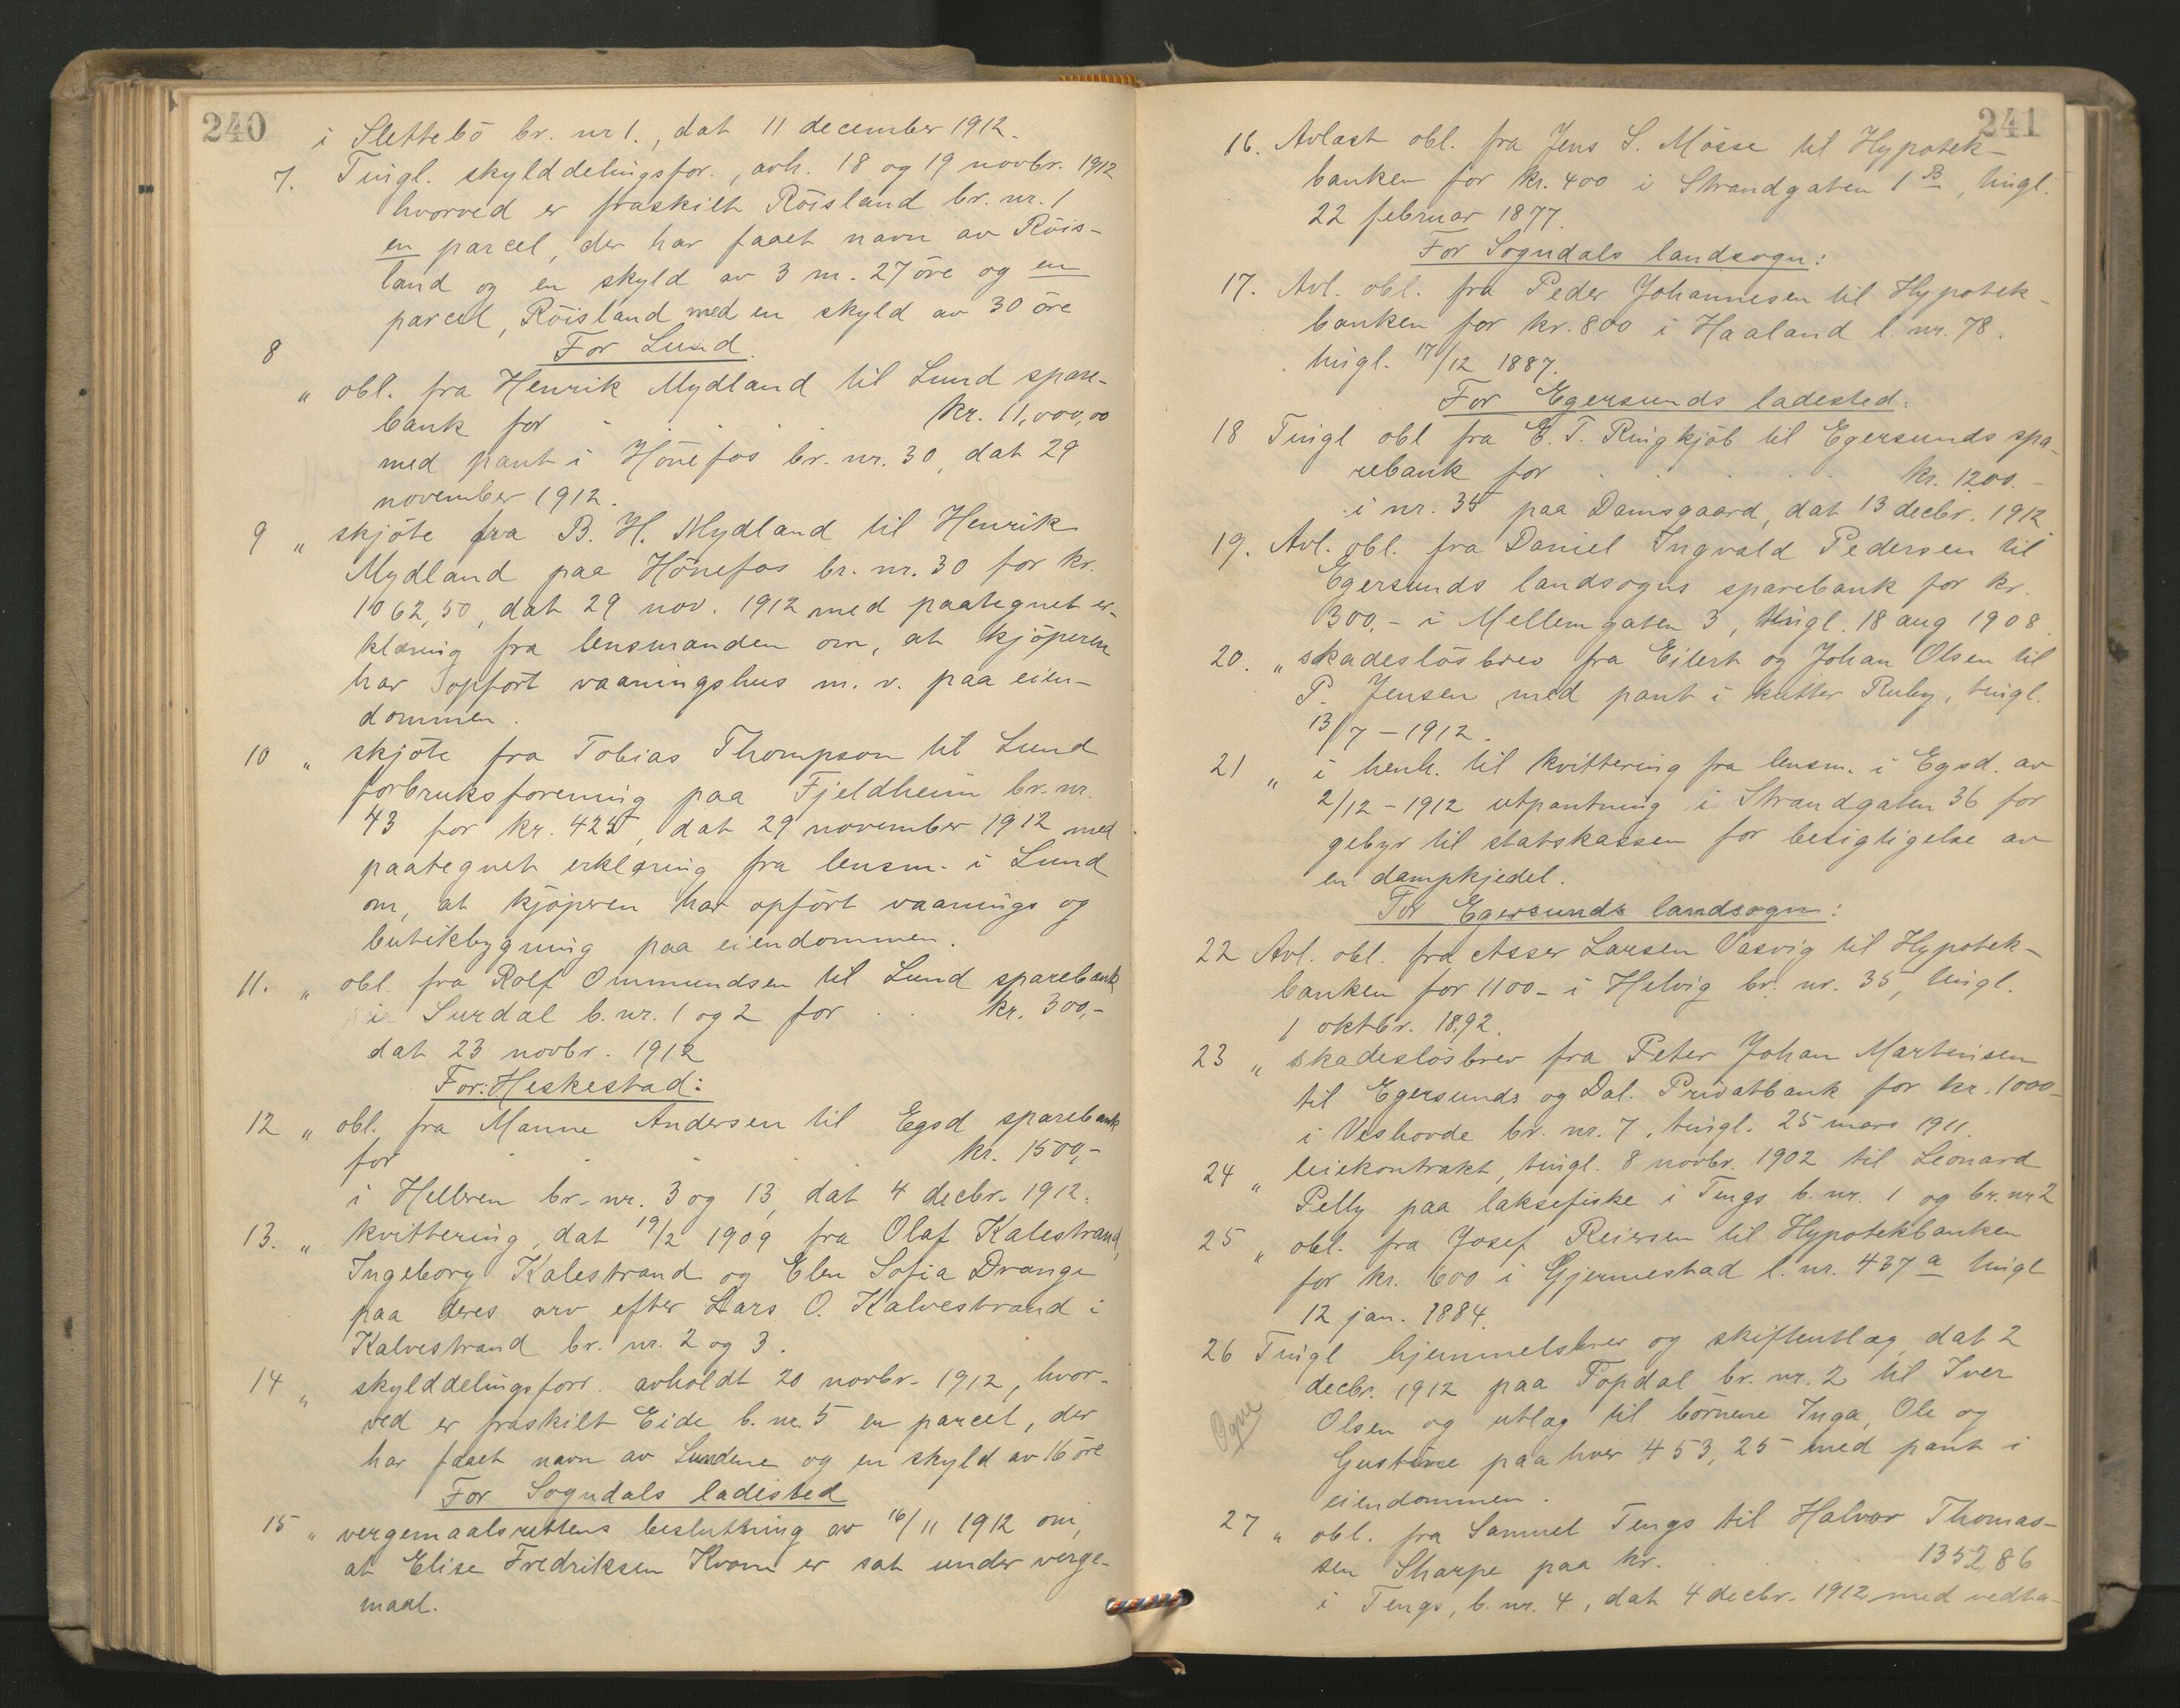 240
i Slettebö br. nr 1., dat 11 december 1912.
7. Tingl. skylddelingsfor., avh. 18 og 19 novbr. 1912
hvorved er fraskilt Röisland br. nr. 1
en parcel, der har faaet navn av Röis-
land og en skyld av 3 m. 27 öre og en
parcel, Röisland med en skyld av 30 öre
For Lund
8 „ obl. fra Henrik Mydland til Lund spare-
bank for - . . . kr. 11,000,00
med pant i Hönefos br. nr. 30, dat 29
november 1912.
9 „ skjöte fra B. H. Mydland til Henrik
Mydland paa Hönefos br. nr. 30 for kr.
1062,50, dat 29 nov. 1912 med paategnet er-
klæring fra lensmanden om, at kjöperen
har opfört vaaningshus m. v. paa eien-
dommen.
10 „ skjöte fra Tobias Thompson til Lund
forbruksforening paa Fjeldheim br. nr.
43 for kr. 425, dat 29 november 1912 med
paategnet erklæring fra lensm. i Lund
om, at kjöperen har opfört vaanings og
butikbygning paa eiendommen.
11. „ obl. fra Rolf Ommundsen til Lund sparebank
i Surdal b. nr. 1 og 2 for . . kr. 300,-
dat 23 novbr. 1912
For: Heskestad:
12 „ obl. fra Manne Andersen til Egsd sparebank
for - - - - kr. 1500,-
i Helleren br. nr. 3 og 13, dat 4 decbr. 1912.
13. „ kvittering, dat 19/2 1909 fra Olaf Kalestrand,
Ingeborg Kalestrand og Elen Sofia Drange
paa deres arv efter Lars O. Kalvestrand i
Kalvestrand br. nr. 2 og 3.
14 „ skylddelingsforr. avholdt 20 novbr. 1912, hvor-
ved er fraskilt Eide b. nr. 5 en parcel, der
har faaet navn av Lundene og en skyld av 16 öre
For Sogndals ladested
15 „ vergemaalsrettens beslutning av 16/11 1912 om,
at Elise Fredriksen Kvam er sat under verge-
maal.
241
16. Avlæst obl. fra Jens S. Mösse til Hypotek-
banken for kr. 400 i Strandgaten 1 B, tingl.
22 februar 1877.
For Sogndals landsogn:
17. Avl. obl. fra Peder Johannesen til Hypotek-
banken for kr. 800 i Haaland l. nr. 78.
tingl. 17/12 1887.
For Egersunds ladested.
18 Tingl obl fra E. T. Ringkjöb til Egersunds spa-
rebank for . . . . . kr. 1200.-
i nr. 35 paa Damsgaard, dat 13 decbr. 1912
19. Avl. obl. fra Daniel Ingvald Pedersen til
Egersunds landsogns sparebank for kr.
300,- i Mellemgaten 3, tingl. 18 aug 1908.
20. „ skadeslösbrev fra Eilert og Johan Olsen til
P. Jensen med pant i kutter Ruby, tingl.
13/7 - 1912.
21 „ i henh. til kvittering fra lensm. i Egsd. av
2/12 - 1912 utpantning i Strandgaten 36 for
gebyr til statskassen for besigtigelse av
en dampkjedel.
For Egersunds landsogn:
22 Avl. obl. fra Asser Larsen Vasvig til Hypotek-
banken for 1100 - i Helvig br. nr. 35, tingl.
1 oktbr. 1892.
23 „ skadeslösbrev fra Peter Johan Martinsen
til Egersunds og Dal. Privatbank for kr. 1000-
i Veshovde br. nr. 7, tingl. 25 mars 1911.
24 „ leiekontrakt, tingl. 8 novbr. 1902 til Leonard
Pelly paa laksefiske i Tengs b. nr. 1 og br. nr 2
25 „ obl. fra Josef Reiersen til Hypotekbanken
for kr. 600 i Gjermestad l. nr. 437 a tingl
12 jan. 1884.
26 Tingl hjemmelsbrev og skifteutlæg, dat 2
decbr. 1912 paa Topdal br. nr. 2 til Iver
Ogne
Olsen og utlæg til börnene Inga, Ole og
Gustine paa hver 453,25 med pant i
eiendommen.
27 „ obl. fra Samuel Tengs til Halvor Thomas-
sen Skarpe paa kr. . . . . 1352,86
i Tengs, b. nr. 4, dat 4 decbr. 1912 med vedta-